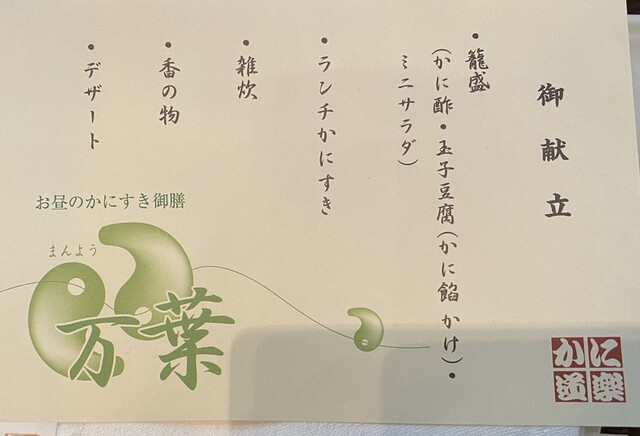 御献立
・籠盛
(かに酢・玉子豆腐(かに餡かけ)・
ミニサラダ)
・ランチかにすき
・雑炊
・香の物
・デザート
お昼のかにすき御膳
まんよう
万葉
かに道楽